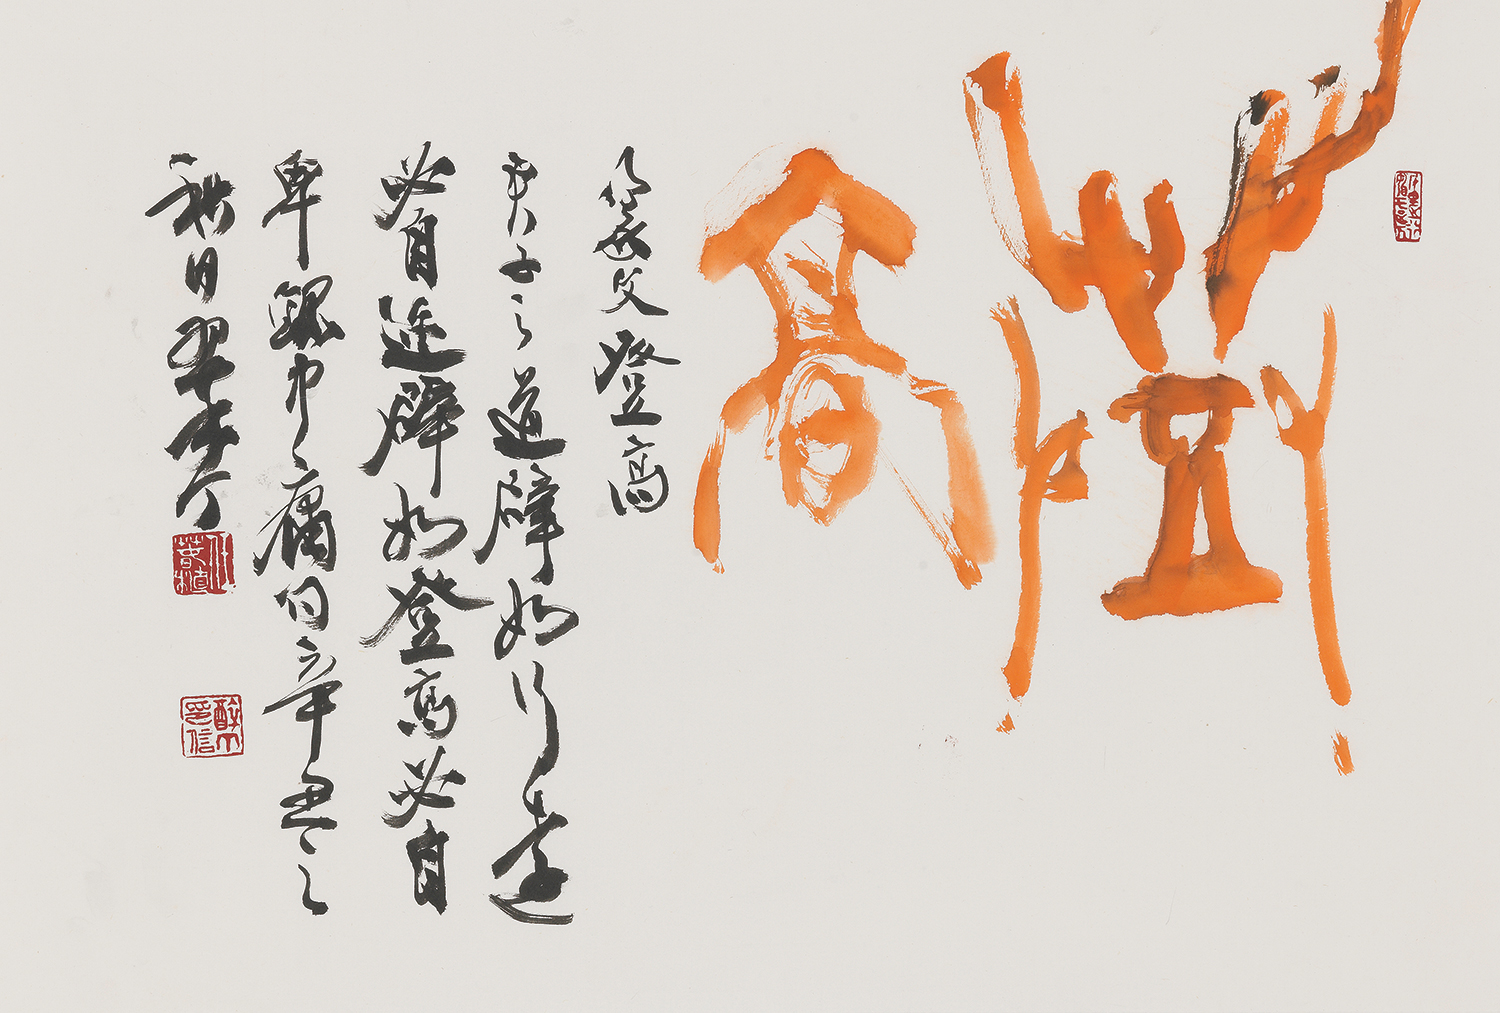 登高
篆文登高
君子之道辟如行遠
必自邇辟如登高必自
卑錄中庸句辛丑之
秋日